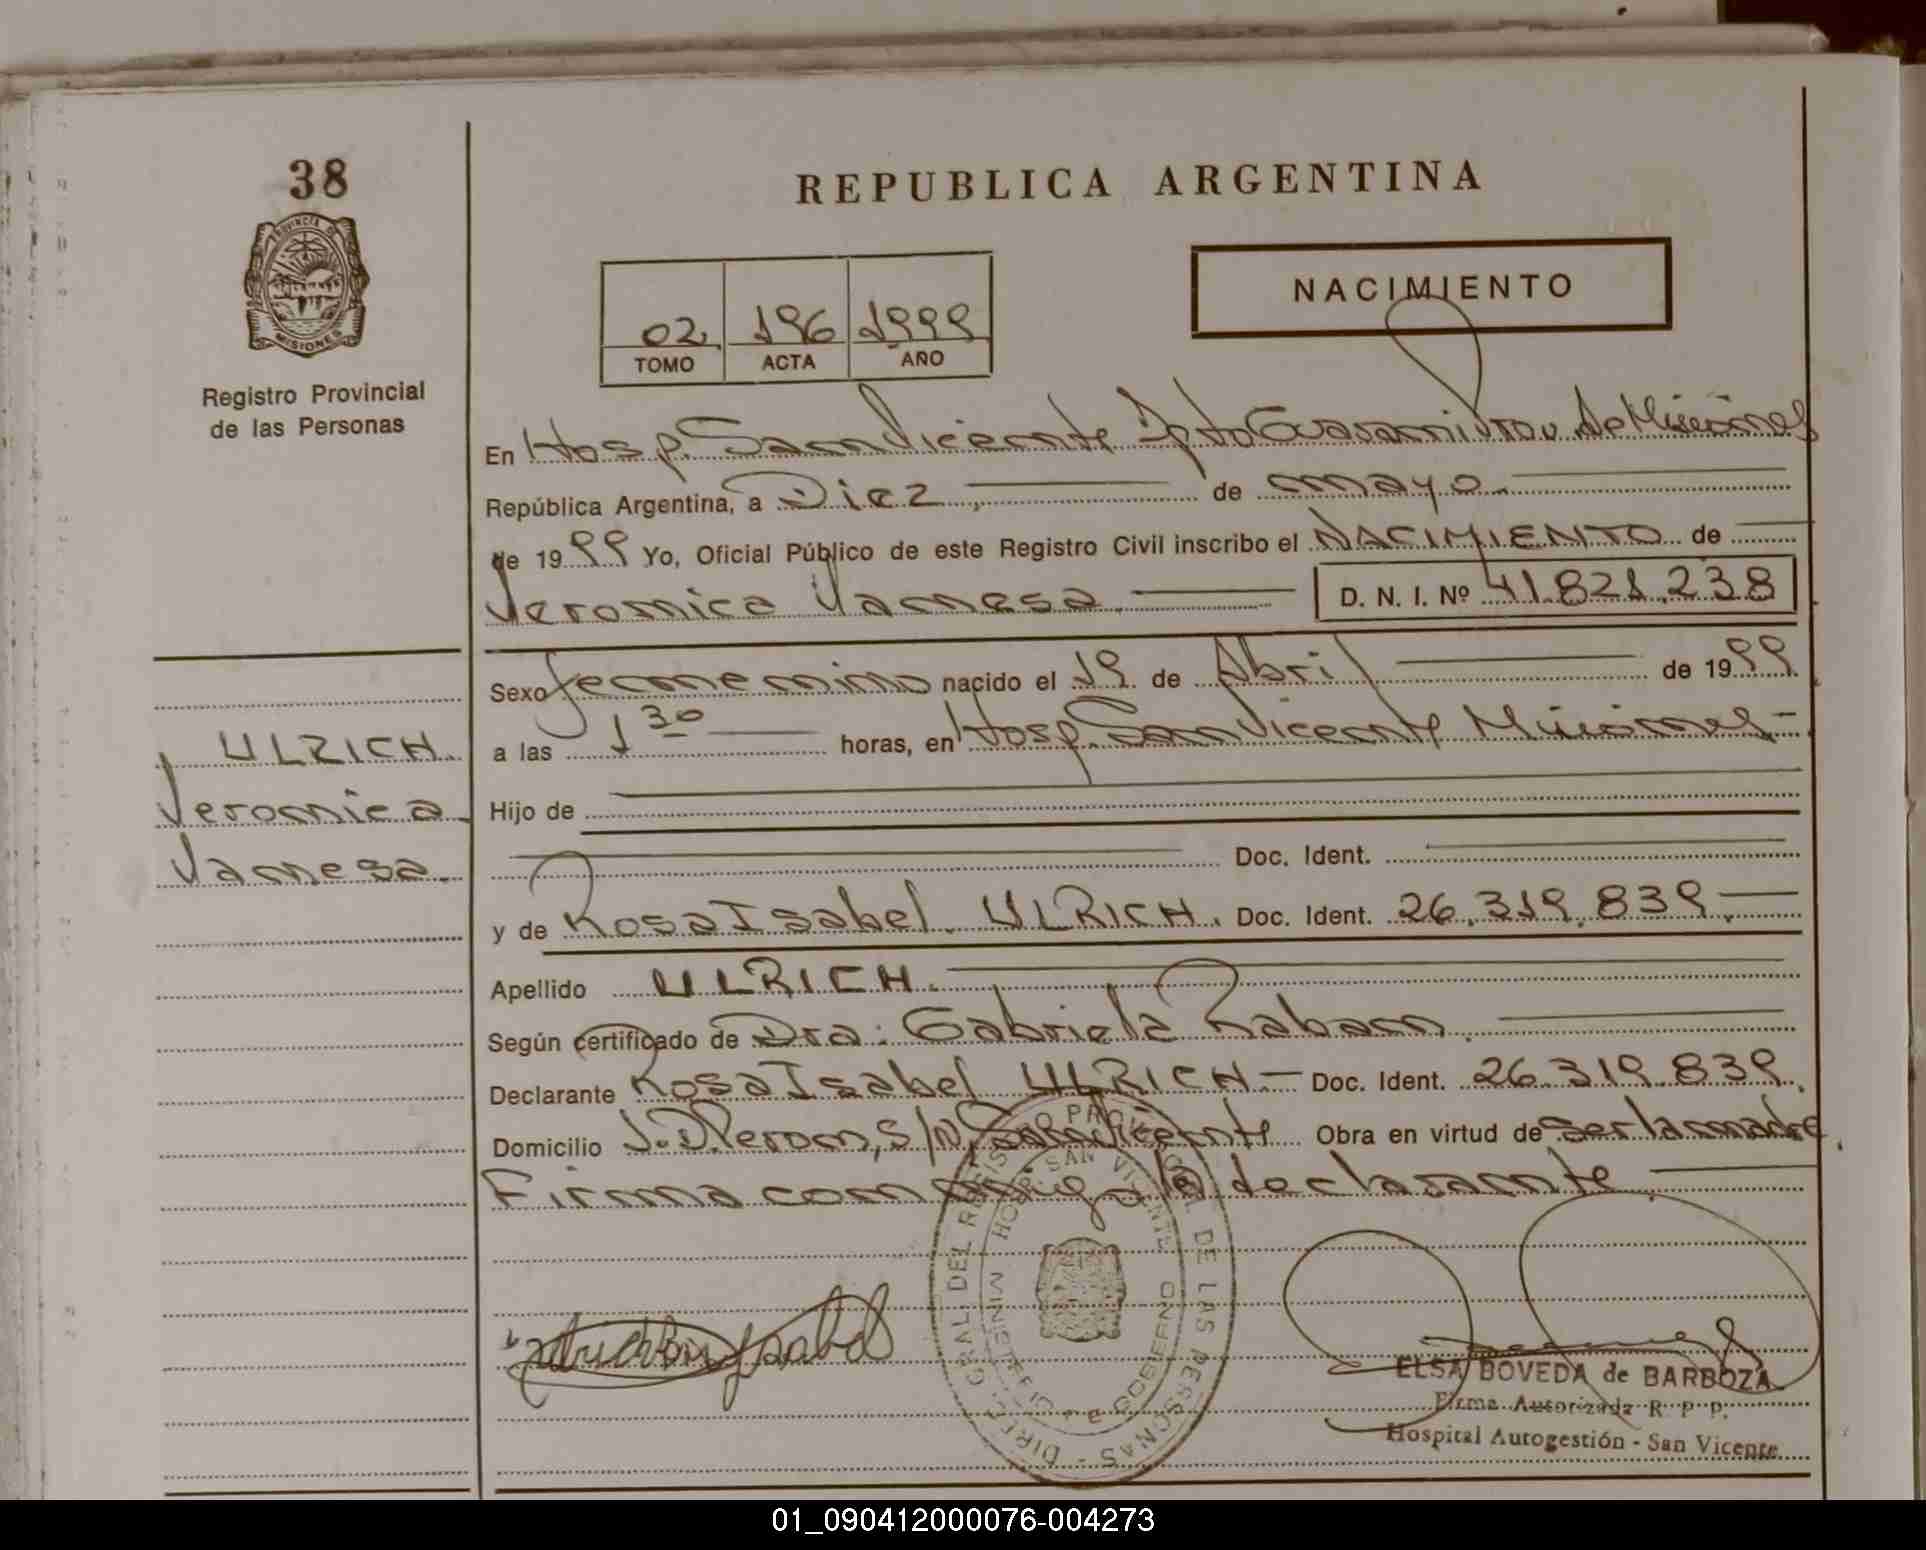 38
PROVINCIA DE
MISIONES
Registro Provincial
de las Personas
REPUBLICA ARGENTINA
02 196 1999
TOMO ACTA AÑO
NACIMIENTO
En Hosp. San Vicente Dpto Guarani Prov. de Misiones
República Argentina, a Diez de mayo
de 1999 Yo, Oficial Público de este Registro Civil inscribo el NACIMIENTO de
Veronica Vanesa. D. N. I. Nº 41.821.238
Sexo femenino nacido el 19 de Abril de 1999
a las 1 30 horas, en Hosp. San Vicente Misiones
Hijo de
Doc. Ident.
y de Rosa Isabel ULRICH. Doc. Ident. 26.319.839.
Apellido ULRICH.
Según certificado de Dra. Gabriela Raban.
Declarante Rosa Isabel ULRICH Doc. Ident. 26.319.839.
Domicilio J.D Peron, s/n, San Vicente Obra en virtud de ser la madre.
Firma conmigo la declarante
ULRICH
Veronica
Vanesa.
DIREC. GRAL. DEL REGISTRO PROVINCIAL DE LAS PERSONAS
HOSP. SAN VICENTE
MINISTERIO DE GOBIERNO
ELSA BOVEDA de BARBOZA
Firma Autorizada R. P. P.
Hospital Autogestión - San Vicente
01_090412000076-004273